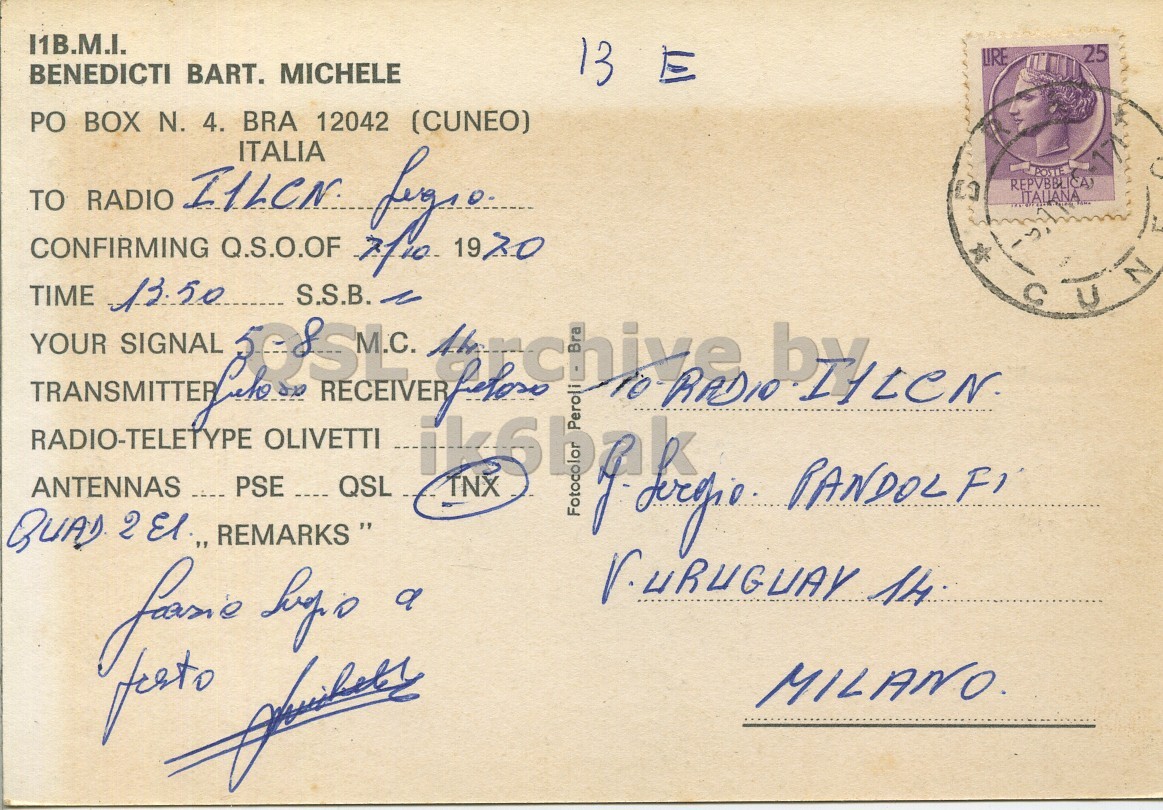 I1B.M.I.
BENEDICTI BART. MICHELE
PO BOX N. 4. BRA 12042 (CUNEO)
ITALIA
13 E
LIRE 25
POSTE
REPVBBLICA
ITALIANA
BRA
CUNEO
TO RADIO I1LCN. Sergio.
CONFIRMING Q.S.O.OF 7/10 1970
TIME 13.50 S.S.B.
YOUR SIGNAL 5-8 M.C. 14
TRANSMITTER Geloso RECEIVER Geloso
RADIO-TELETYPE OLIVETTI
ANTENNAS PSE QSL TNX
QUAD 2 El. „ REMARKS "
Grazie Sergio a
presto
Michele
Fotocolor Peroli - Bra
TO RADIO I1LCN.
Sergio. PANDOLFI
V. URUGUAY 14.
MILANO.
QSL archive by
ik6bak